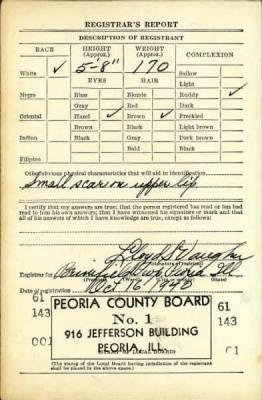 REGISTRAR'S REPORT
DESCRIPTION OF REGISTRANT
RACE HEIGHT (Approx.) WEIGHT (Approx.) COMPLEXION
White ✓ 5'-8" 170 Sallow
Light
EYES HAIR
Negro Blue Blonde Ruddy ✓
Gray Red Dark
Oriental Hazel ✓ Brown ✓ Freckled
Brown Black Light brown
Indian Black Gray Dark brown
Bald Black
Filipino
Other obvious physical characteristics that will aid in identification
Small scar on upper lip
I certify that my answers are true; that the person registered has read or has had
read to him his own answers; that I have witnessed his signature or mark and that
all of his answers of which I have knowledge are true, except as follows:
Lloyd Vaughn
(Signature of registrar)
Registrar for Brimfield Twp Peoria Ill
(State)
Date of registration Oct 16 1940
61 PEORIA COUNTY BOARD 61
143 No. 1 143
001 916 JEFFERSON BUILDING 01
PEORIA, ILL.
(STAMP OF LOCAL BOARD)
(The stamp of the Local Board having jurisdiction of the registrant
shall be placed in the above space.)